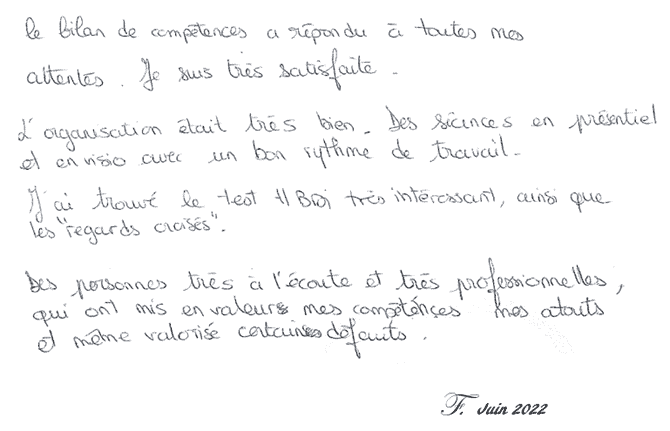 le bilan de compétences a répondu à toutes mes
attentes. Je suis très satisfaite.
L'organisation était très bien. Des séances en présentiel
et en visio avec un bon rythme de travail.
J'ai trouvé le test HBDI très intéressant, ainsi que
les "regards croisés".
Des personnes très à l'écoute et très professionnelles,
qui ont mis en valeurs mes compétences mes atouts
et même valorisé certaines défauts.
F. Juin 2022